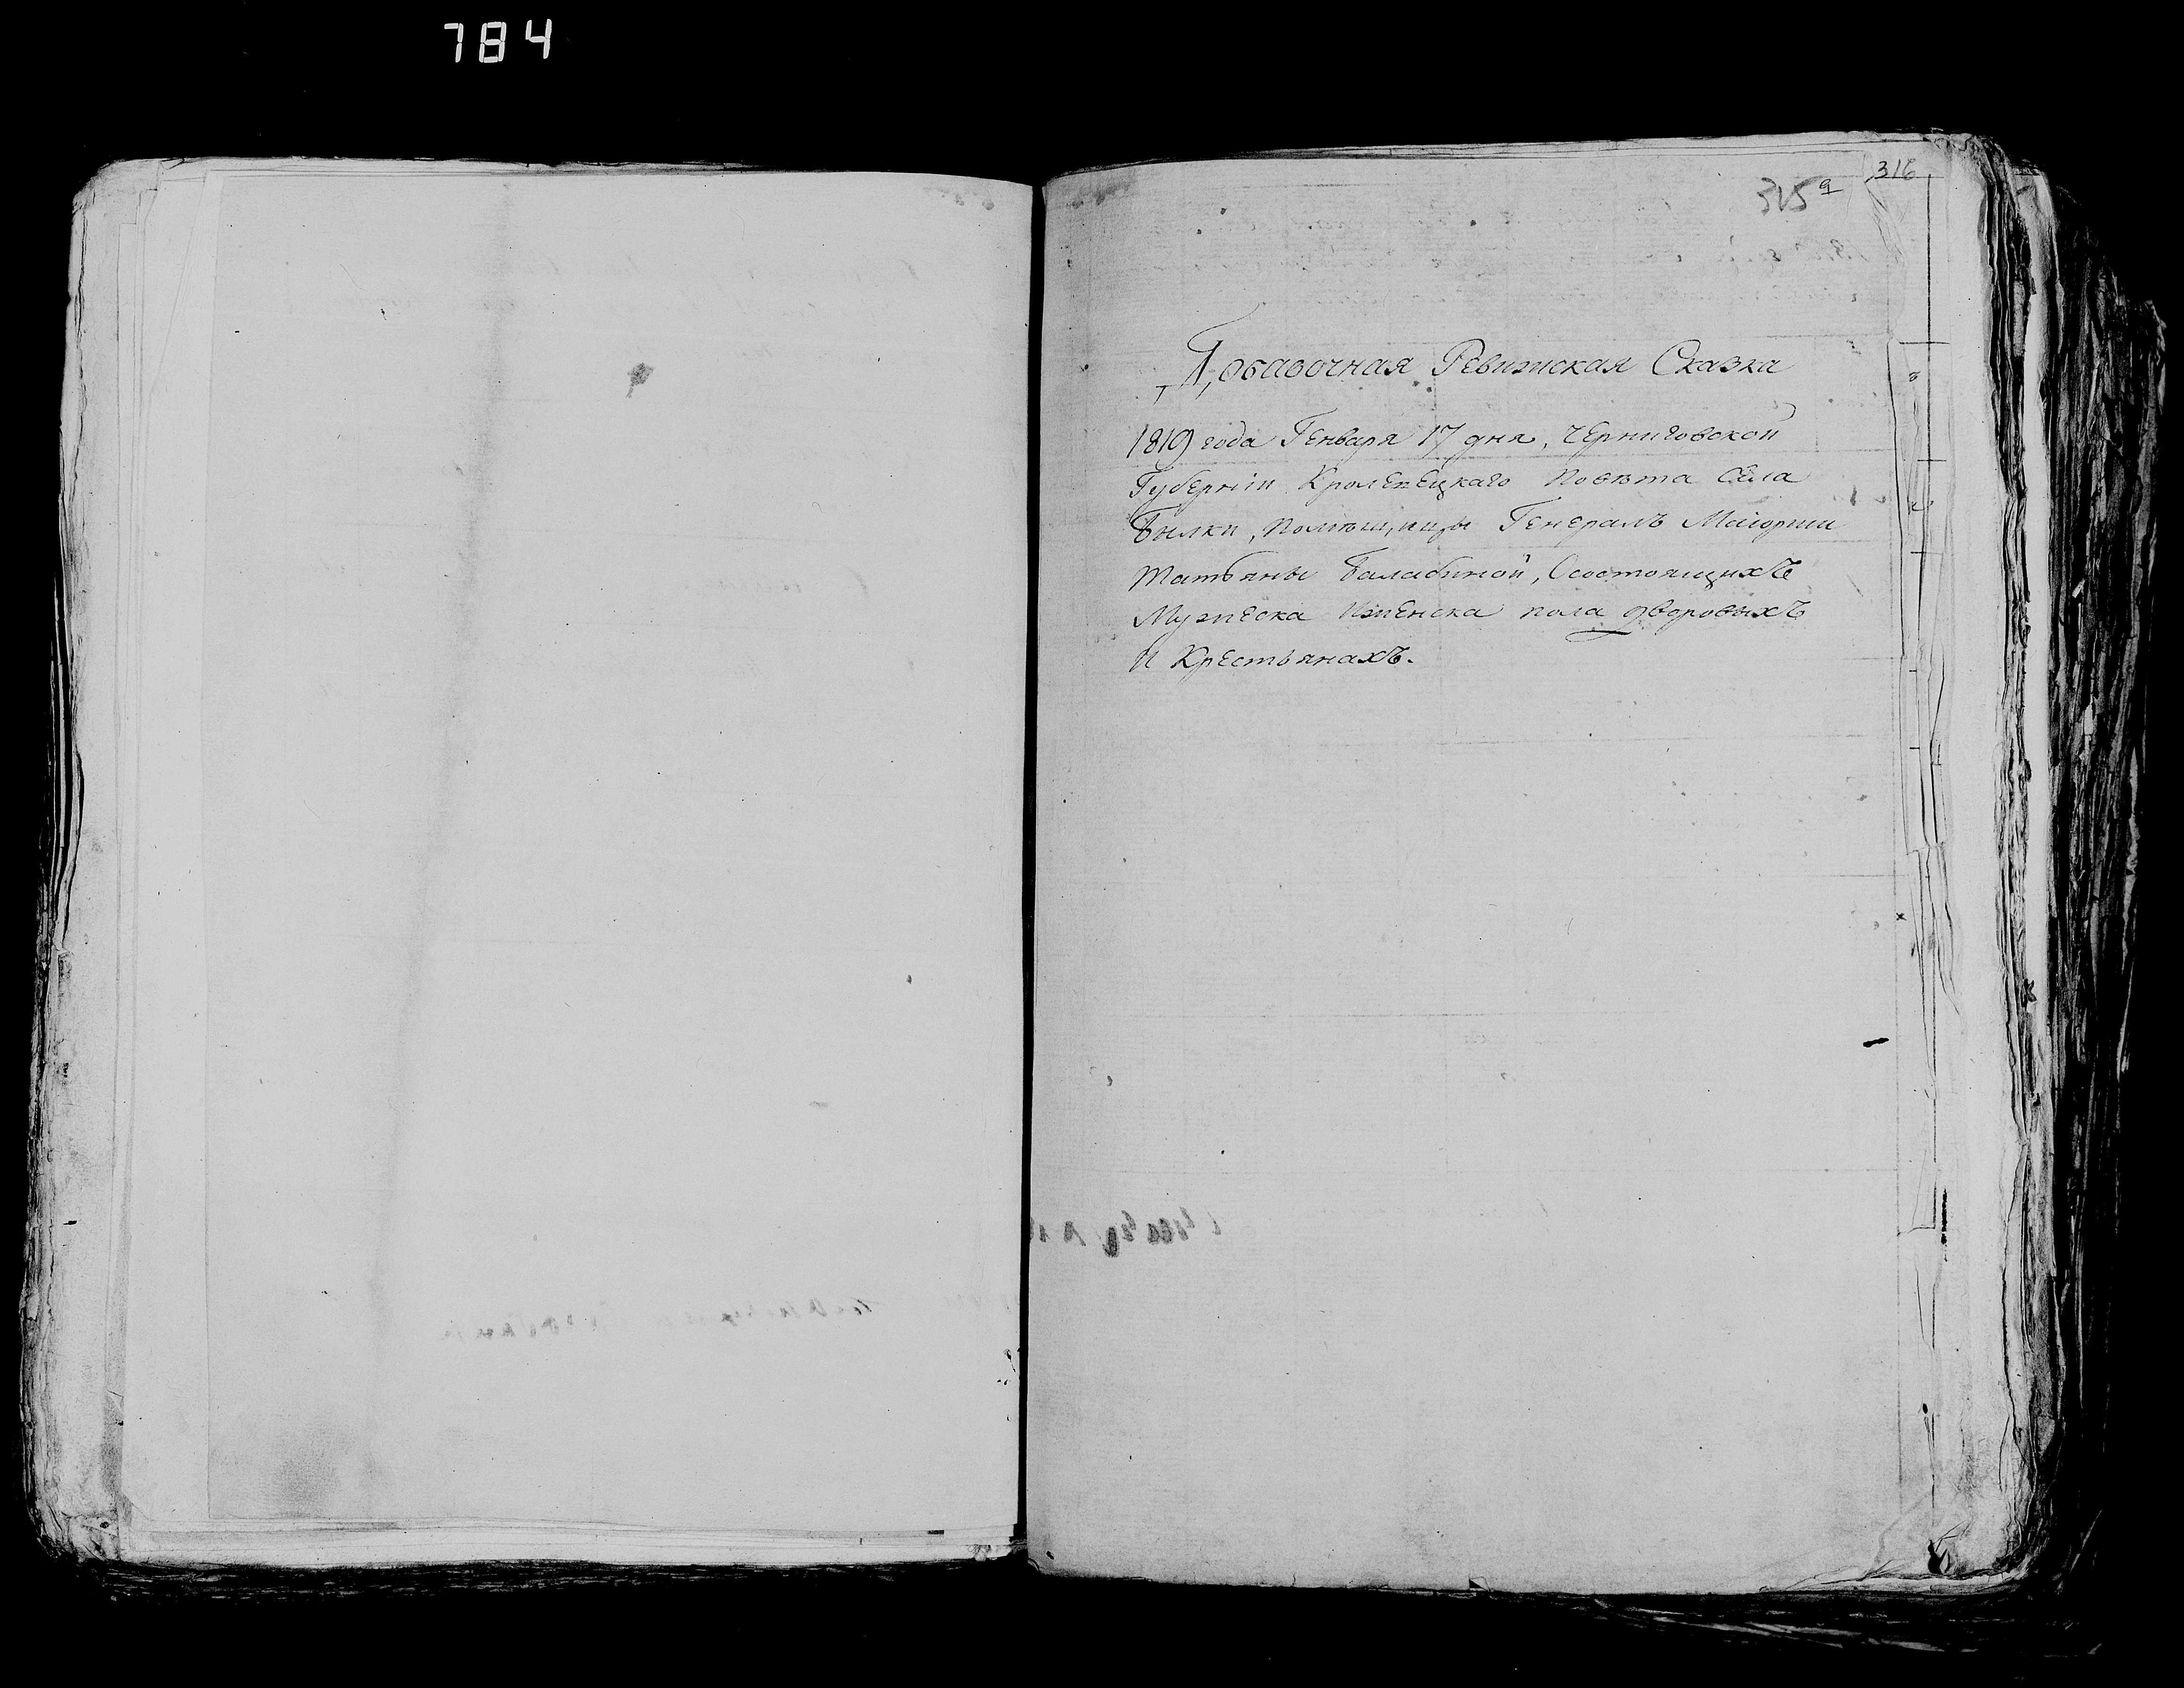 784
316
315а
Добавочная Ревижская Сказка
1819 года Генваря 17 дня, Черниговской
Губерніи Кролевецкаго Повѣта Села
Былки, помѣщицы Генералъ Маіорши
Татьяны Балабиной, Осостоящихъ
Мужеска Иженска пола дворовыхъ
и Крестьянахъ.